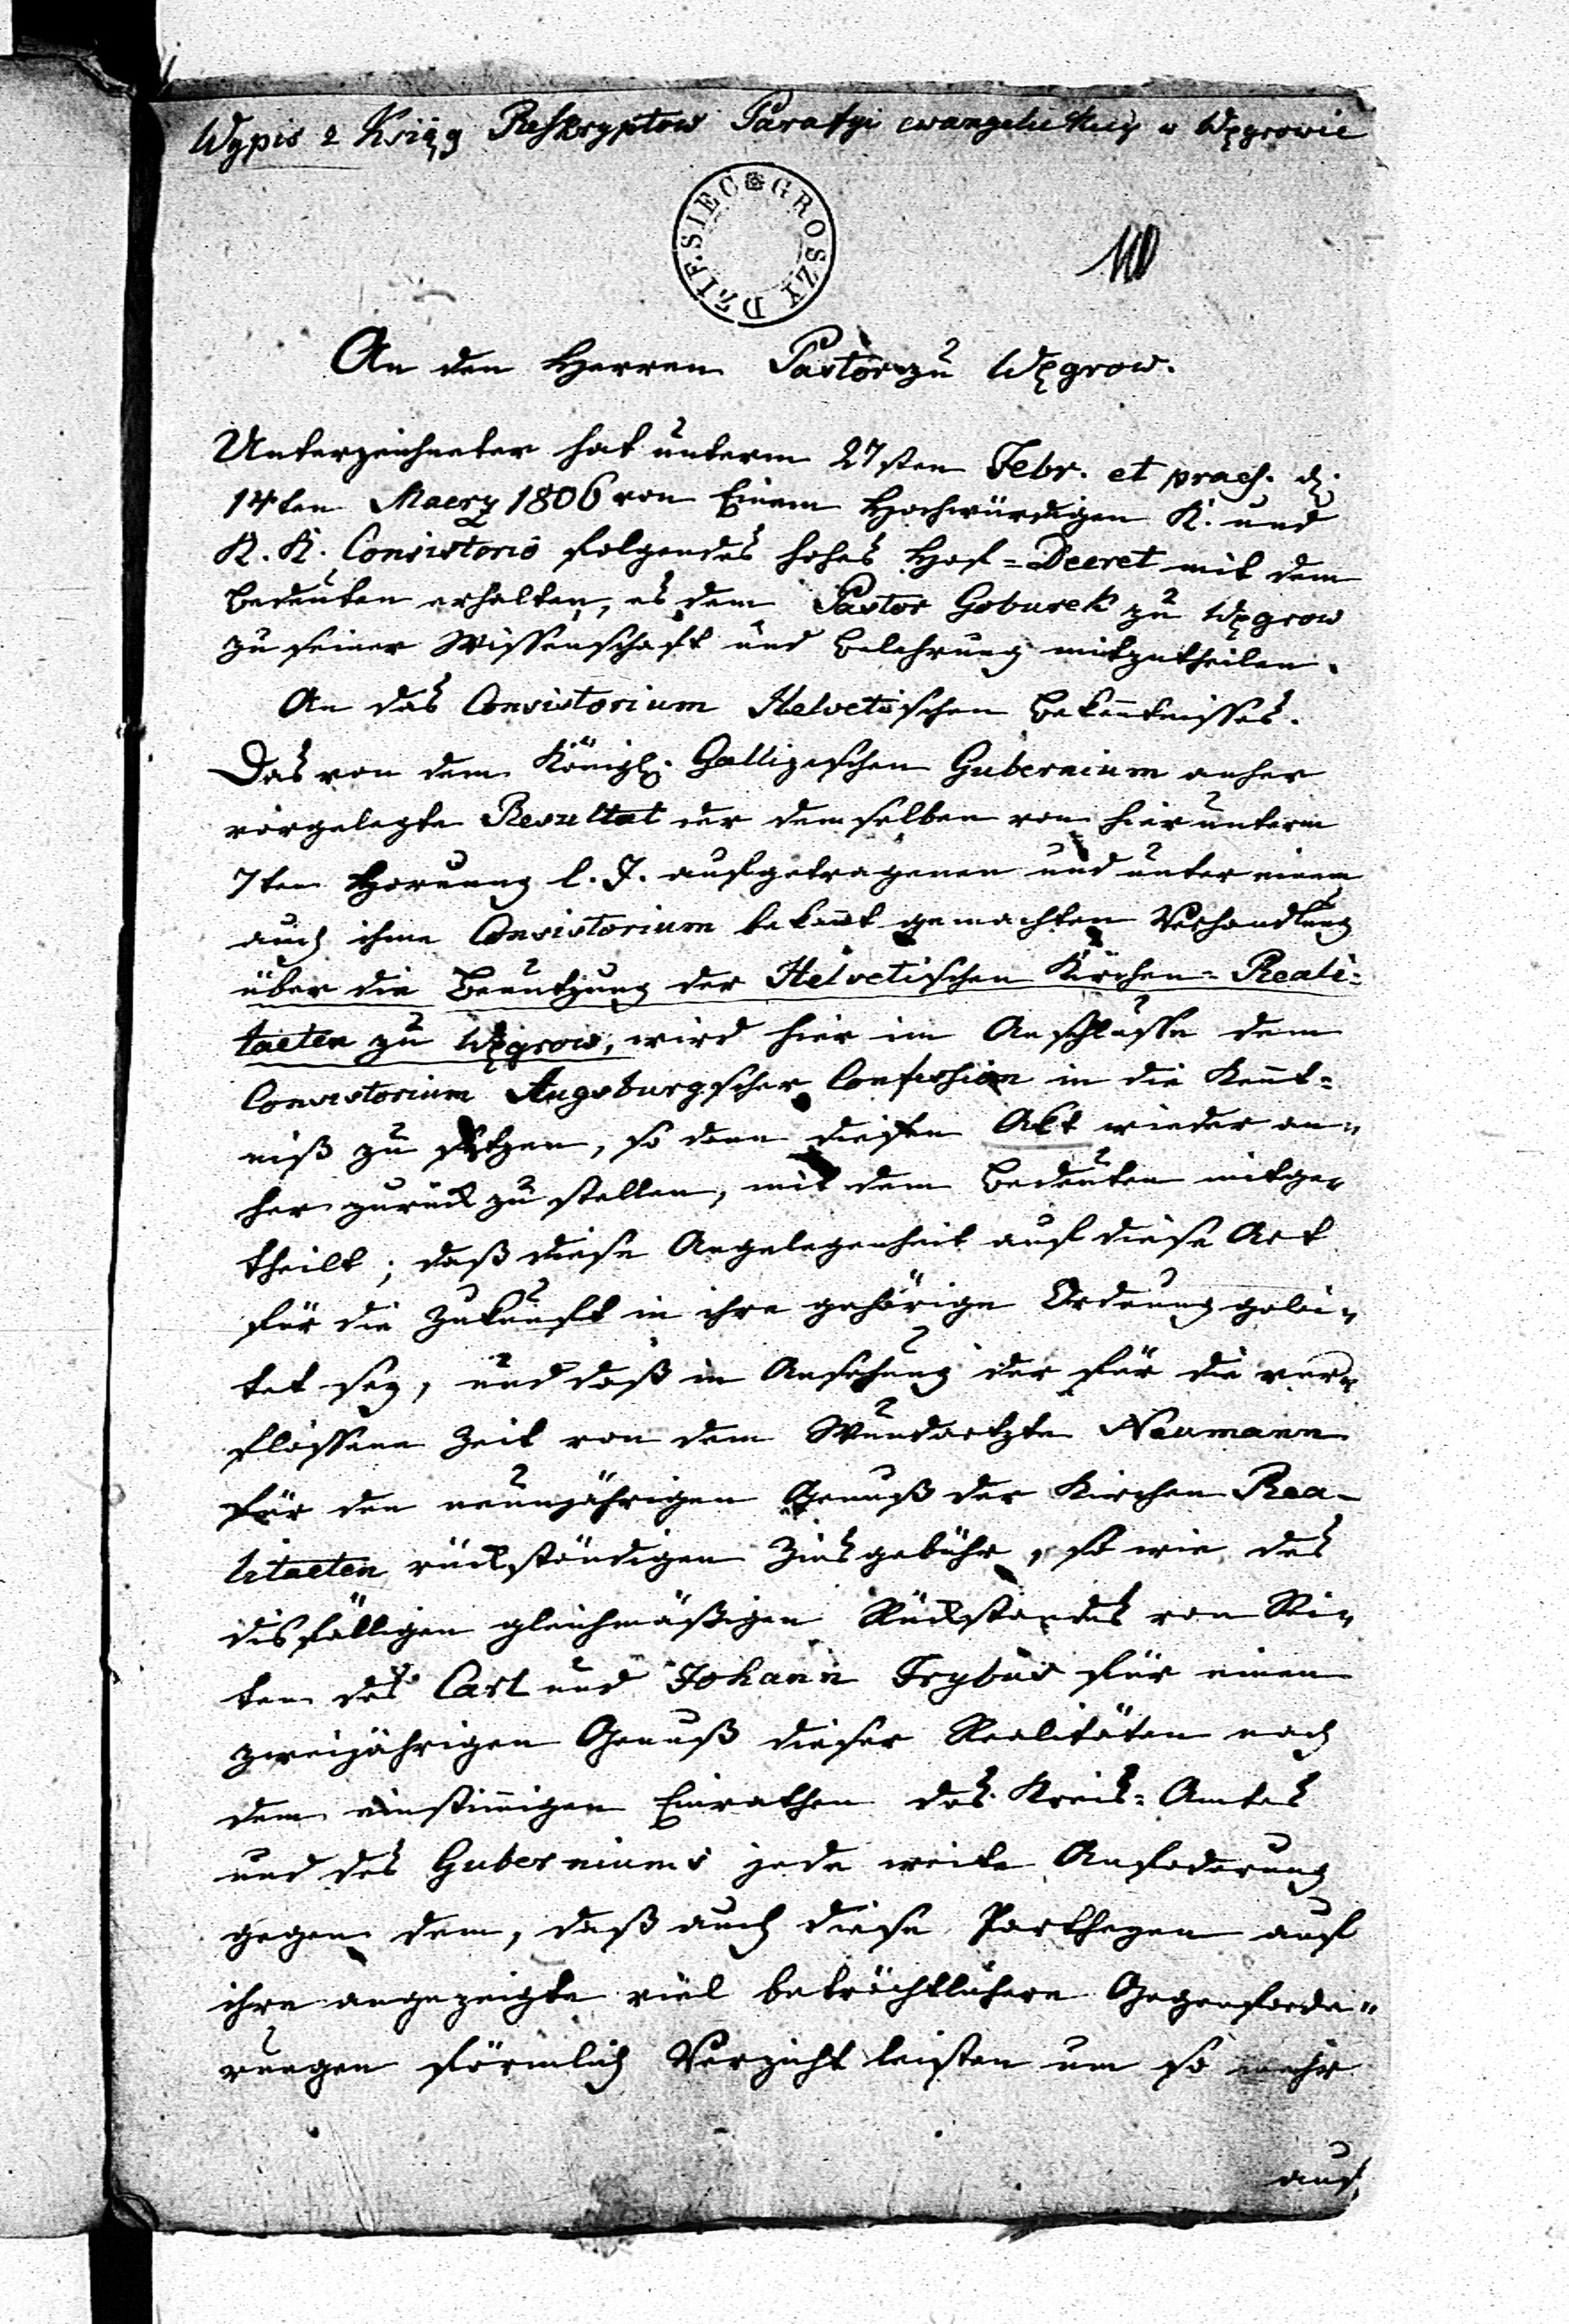 Wypis z Książg Reskryptow Parafyi ewangelickiey w Węgrowie
DZIESIEC GROSZY
An den Herren Pastor zu Węgrow.
Unterzeichneter hat unterm 27sten Febr. et praes. d.
14ten Maerz 1806 von Einem Hochwürdigen K. und
K. K. Consistorio folgendes hohes Hof=Decret mit dem
Bedeuten erhalten, es dem Pastor Goburek zu Węgrow
zu seiner Wissenschaft und Belehrung mitzutheilen.
An das Consistorium Helvetischen Bekentnisses.
Das von dem Königl. Gallizischen Gubernium anher
vorgelegte Resultat der demselben von hier unterm
7ten Hornung l. J. aufgetragenen und unter einem
auch ihme Consistorium bekant gemachten Verhandlung
über die Benutzung der Helvetischen Kirchen=Reali=
taeten zu Węgrow, wird hier im Anschlusse dem
Consistorium Augsburgscher Confession in die Kent=
niß zu setzen, so dann diesen Akt wieder an=
her zurück zu stellen, mit dem Bedeuten mitge=
theilt; daß diese Angelegenheit auf diese Art
für die Zukunft in ihre gehörige Ordnung gelei=
tet sey, und daß in Ansehung der für die ver=
flossene Zeit von dem Wundarzte Neumann
für den neunjährigen Genuß der Kirchen Rea=
litaeten rückständigen Zinsgebühr, so wie des
disfälligen gleichmäßigen Rückstandes von Sei=
ten des Carl und Johann Frybus für einen
zweijährigen Genuß dieser Realitäten nach
dem einstimigen Einrathen des Kreis=Amtes
und des Guberniums jede weite Anfoderung
gegen dem, daß auch diese Partheyen auf
ihre angezeigte viel beträchtlichere Gegenforde=
rungen förmlich Verzicht leisten um so mehr
auf